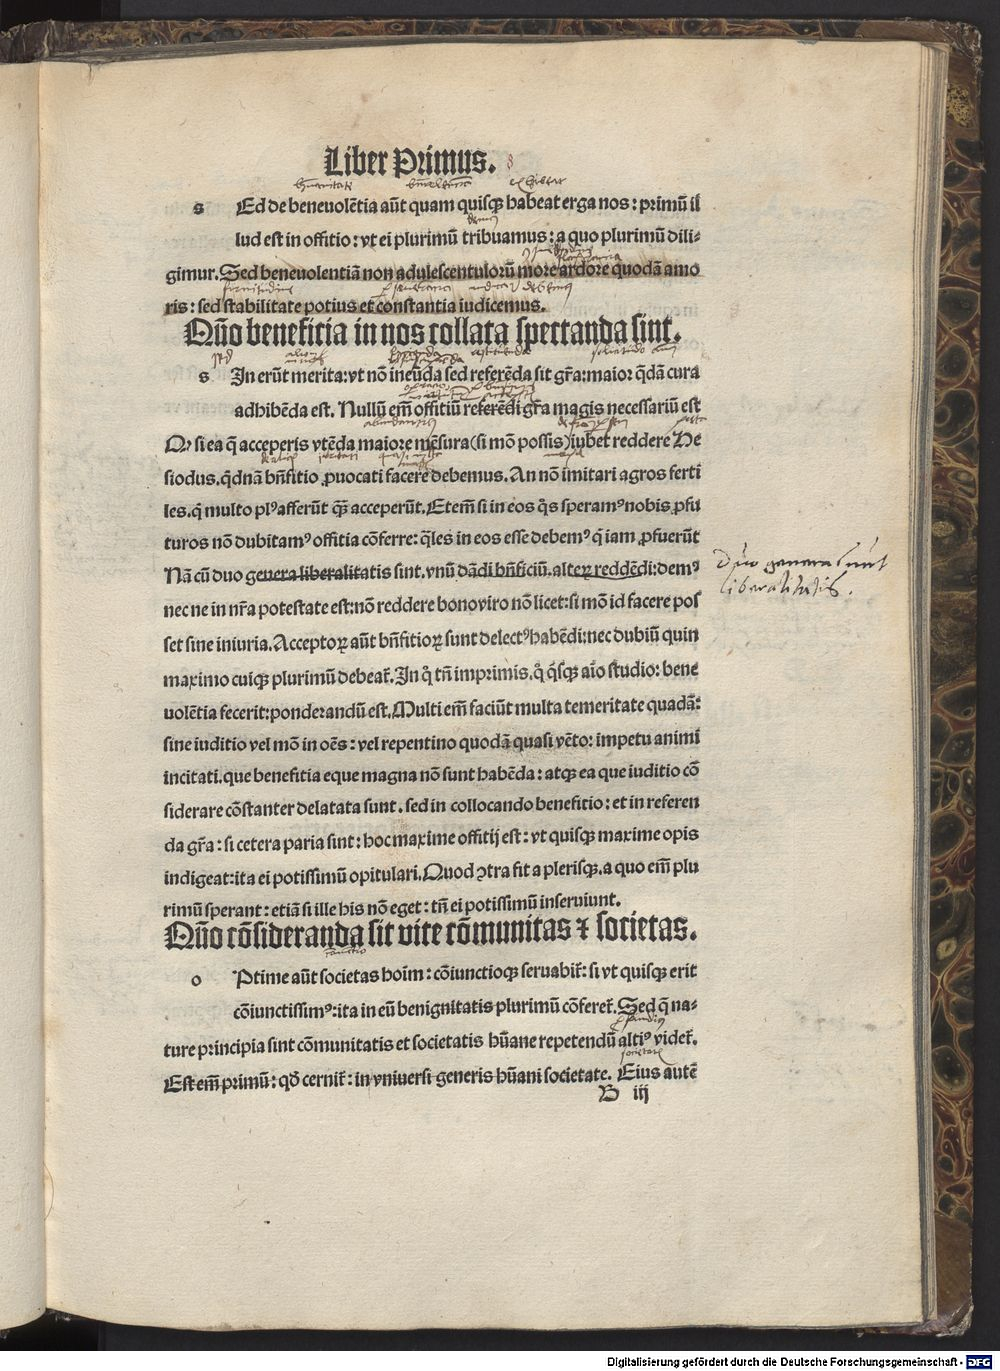 Liber Primus.
s Ed de beneuolẽtia aũt quam quisqꝫ habeat erga nos: primũ il
lud est in offitio: vt ei plurimũ tribuamus: a quo plurimũ dili-
gimur. Sed beneuolentiã non adulescentulorũ more ardore quodã amo
ris: sed stabilitate potius et constantia iudicemus.
Quõ benefitia in nos collata spectanda sint.
s In erũt merita: vt nõ ineũda sed referẽda sit gr̃a: maior q̃dã cura
adhibẽda est. Nullũ em̃ offitiũ referẽdi gr̃a magis necessariũ est
Qꝫ si ea q̃ acceperis vtẽda maiore mẽsura (si mõ possis) iubet reddere He
siodus. q̃dnã bñfitio ꝓuocati facere debemus. An nõ imitari agros ferti
les. q̃ multo plꝰ afferũt qꝫ̃ acceperũt. Etem̃ si in eos q̃s speramꝰ nobis ꝓfu
turos nõ dubitamꝰ offitia cõferre: q̃les in eos esse debemꝰ q̃ iam ꝓfuerũt
Nã cũ duo genera liberalitatis sint. vnũ dãdi bñficiũ. alteꝝ reddẽdi: demꝰ
nec ne in nr̃a potestate est: nõ reddere bono viro nõ licet: si mõ id facere pos
set sine iniuria. Acceptoꝝ aũt bñfitioꝝ sunt delectꝰ habẽdi: nec dubiũ quin
maximo cuiqꝫ plurimũ debeat̃. In q̊ tñ imprimis. q̊ q̃sqꝫ aĩo studio: bene
uolẽtia fecerit: ponderandũ est. Multi em̃ faciũt multa temeritate quadã:
sine iuditio vel mõ in oẽs: vel repentino quodã quasi vẽto: impetu animi
incitati. que benefitia eque magna nõ sunt habẽda: atqꝫ ea que iuditio cõ
siderare cõstanter delatata sunt. sed in collocando benefitio: et in referen
da gr̃a: si cetera paria sint: hoc maxime offitij est: vt quisqꝫ maxime opis
indigeat: ita ei potissimũ opitulari. Quod ↄtra fit a plerisqꝫ. a quo em̃ plu
rimũ sperant: etiã si ille his nõ eget: tñ ei potissimũ inserviunt.
Quõ cõsideranda sit vite cõmunitas ⁊ societas.
o Ptime aũt societas hoim̃: cõiunctioqꝫ seruabit̃: si vt quisqꝫ erit
cõiunctissimꝰ: ita in eũ benignitatis plurimũ cõferet̃. Sed q̃ na-
ture principia sint cõmunitatis et societatis hũane repetendũ altiꝰ videt̃.
Est em̃ primũ: qð cernit̃: in vniuersi generis hũani societate. Eius autẽ
B iij
Duo genera sunt
liberalitatis.
Digitalisierung gefördert durch die Deutsche Forschungsgemeinschaft - DFG